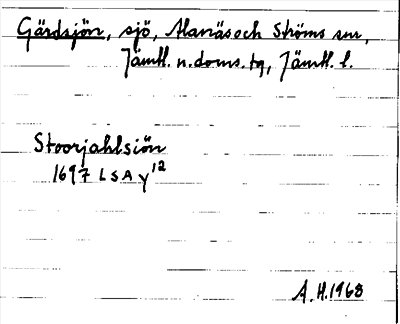 Gärdsjön, sjö, Alanäs och Ströms snr,
Jämtl. n. doms. tg, Jämtl. l.
Stoorjahlsiön
1697 LSA y12
A.H. 1968